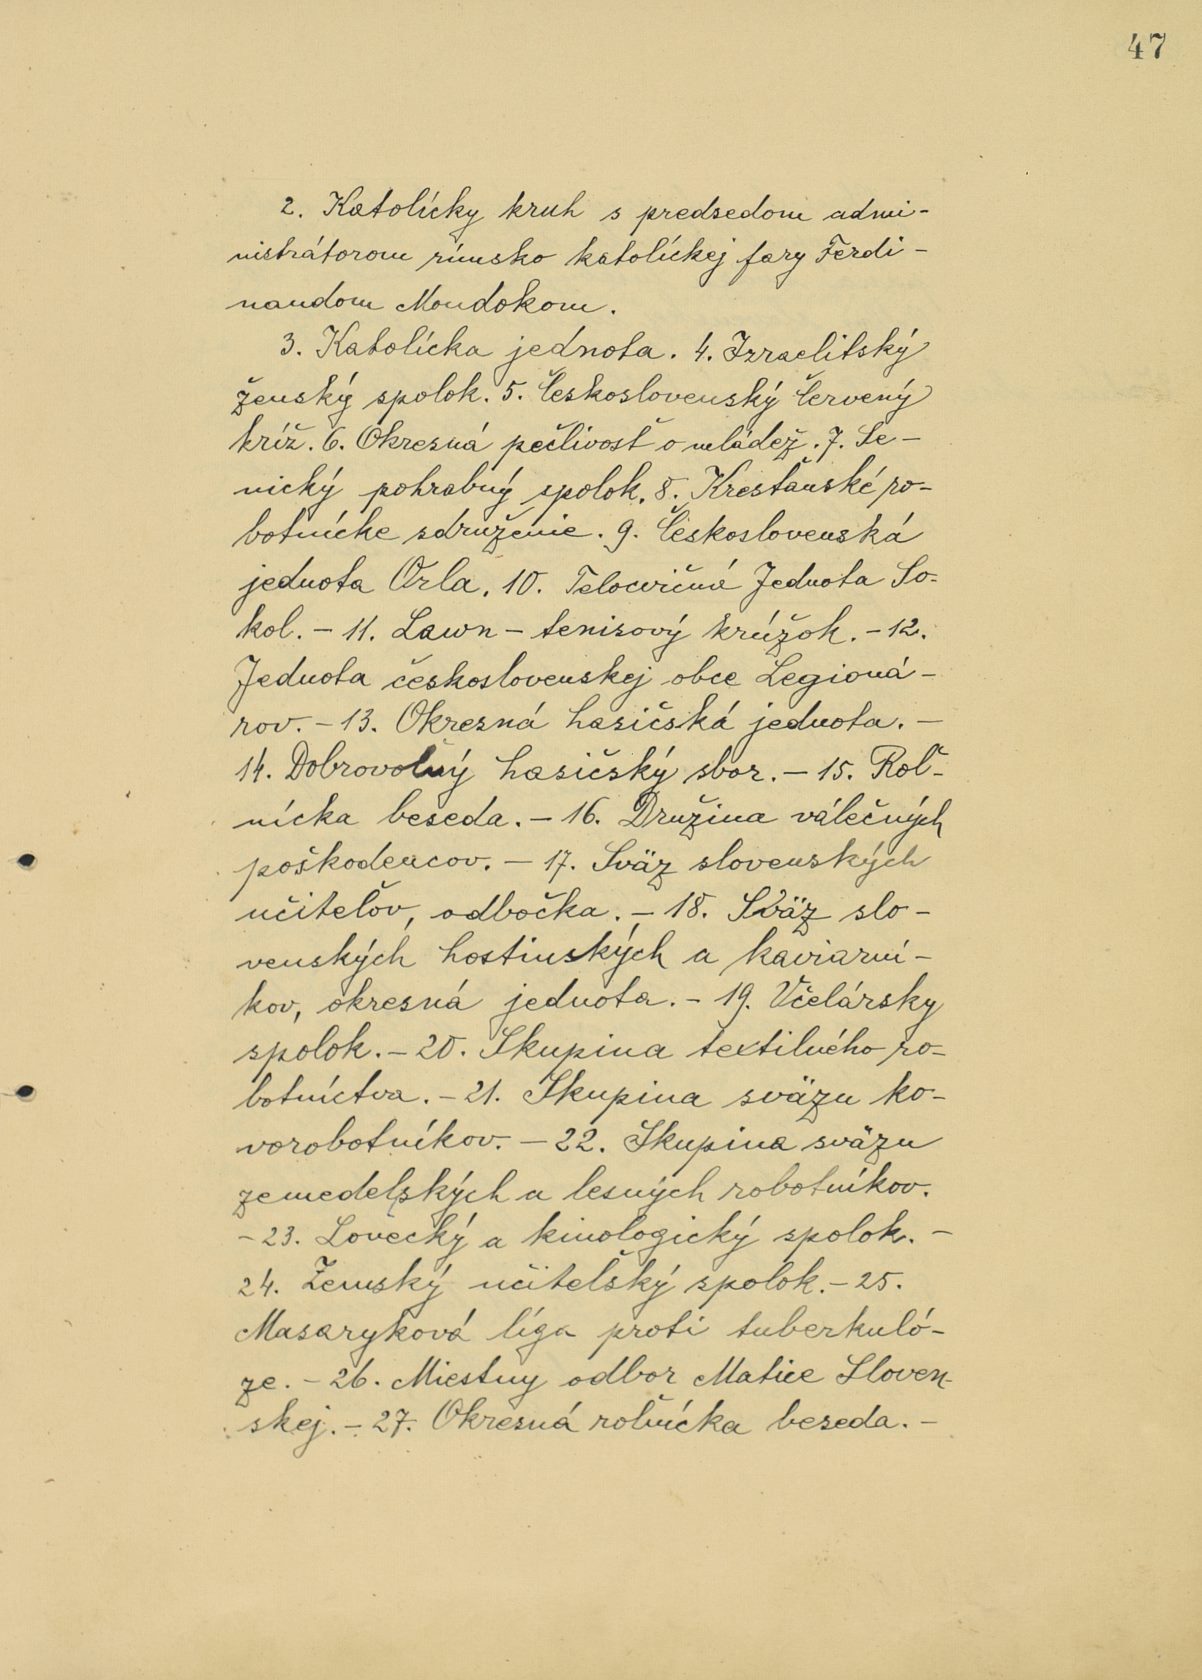 47
2. Katolícky kruh s predsedom admi-
nistrátorom rímsko katolíckej fary Ferdi-
nandom Mondokom.
3. Katolícka jednota. 4. Izraelitský
ženský spolok. 5. Československý Červený
kríž. 6. Okresná pečlivosť o mládež. 7. Se-
nický pohrabný spolok. 8. Kresťanské ro-
botnícke sdruženie. 9. Československá
jednota Orla. 10. Telocvičná Jednota So-
kol. - 11. Lawn - tenisový krúžok. - 12.
Jednota československej obce Legioná-
rov. - 13. Okresná hasičská jednota. -
14. Dobrovoľný hasičský sbor. - 15. Roľ-
nícka beseda. - 16. Družina válečných
poškodencov. - 17. Sväz slovenských
učiteľov, odbočka. - 18. Sväz slo-
venských hostinských a kaviarní-
kov, okresná jednota. - 19. Včelársky
spolok. - 20. Skupina textilného ro-
botníctva. - 21. Skupina sväzu ko-
vorobotníkov. - 22. Skupina sväzu
zemedelských a lesných robotníkov.
- 23. Lovecký a kinologický spolok. -
24. Zemský učiteľský spolok. - 25.
Masaryková líga proti tuberkuló-
ze. - 26. Miestny odbor Matice Sloven-
skej. - 27. Okresná roľnícka beseda. -